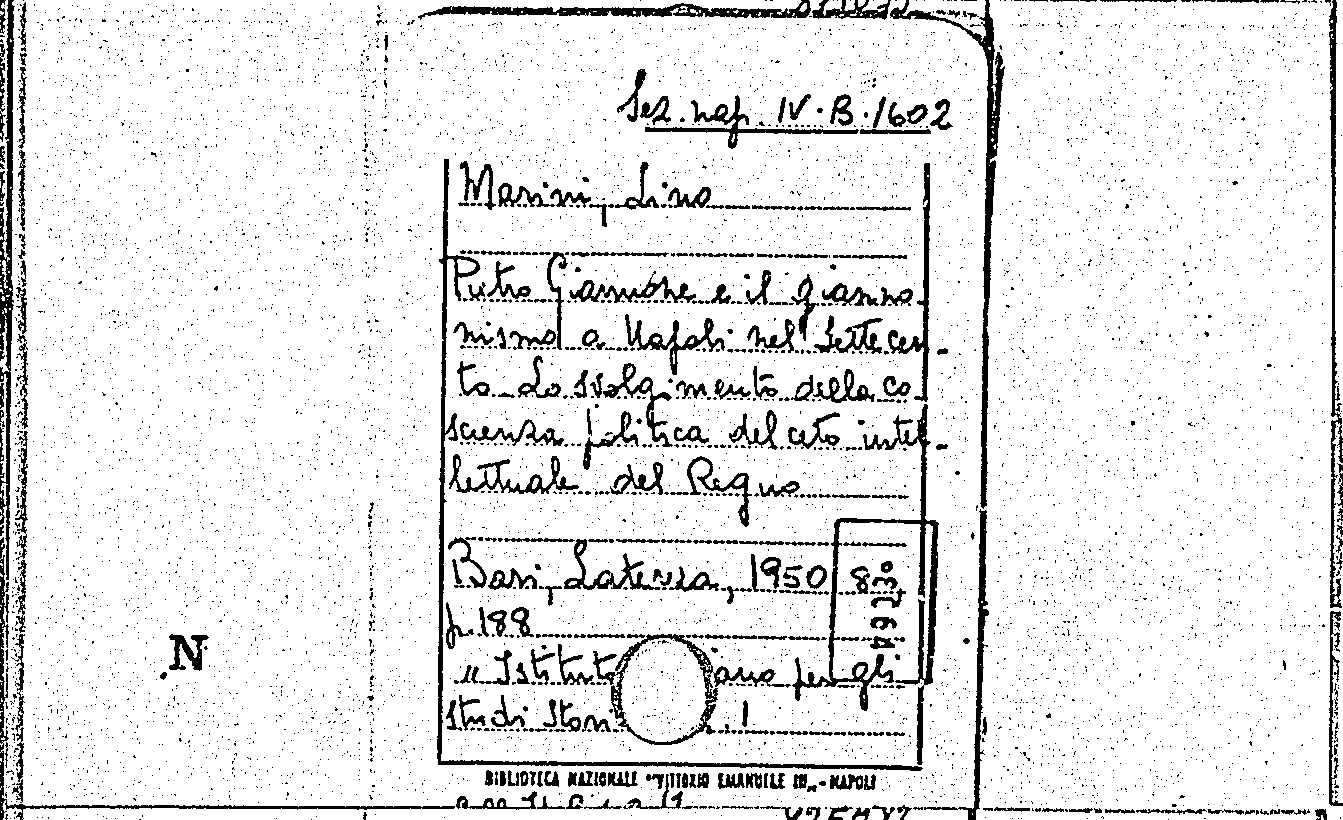 Sez. nap. IV. B. 1602
Marini, Lino
Pietro Giannone e il gianno-
nismo a Napoli nel Settecen-
to. Lo svolgimento della co-
scienza politica del ceto intel-
lettuale del Regno
Bari, Laterza, 1950 8°
p. 188
"Istitut ano per gli
studi stori . 1
N
BIBLIOTECA NAZIONALE "VITTORIO EMANUELE III" - NAPOLI